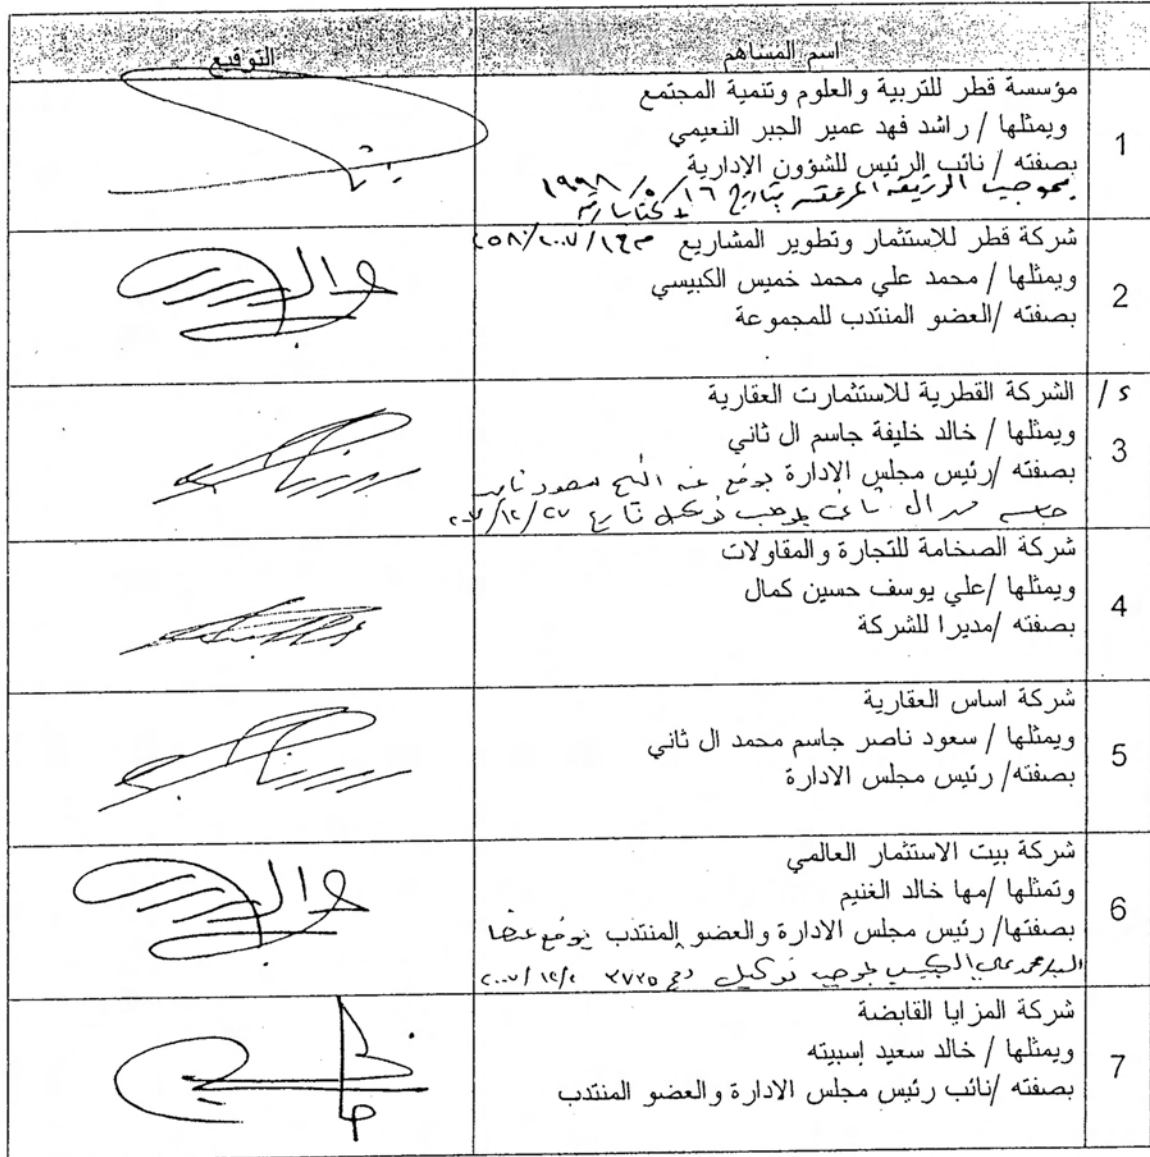 اسم المساهم
التوقيع
1
مؤسسة قطر للتربية والعلوم وتنمية المجتمع
ويمثلها / راشد فهد عمير الجبر النعيمي
بصفته / نائب الرئيس للشؤون الإدارية
بموجب الوثيقة المرفقة بتاريخ ١٦/٥/١٩٩٨
2
شركة قطر للإستثمار وتطوير المشاريع
ويمثلها / محمد علي محمد خميس الكبيسي
بصفته /العضو المنتدب للمجموعة
3
الشركة القطرية للاستثمارت العقارية
ويمثلها / خالد خليفة جاسم ال ثاني
بصفته /رئيس مجلس الادارة يوقع عنه الشيخ سعود ناصر
جاسم محمد ال ثاني بموجب توكيل تاريخ ٢٠٠٧/١٢/٢٧
4
شركة الصخامة للتجارة والمقاولات
ويمثلها /علي يوسف حسين كمال
بصفته /مديرا للشركة
5
شركة اساس العقارية
ويمثلها / سعود ناصر جاسم محمد ال ثاني
بصفته/ رئيس مجلس الادارة
6
شركة بيت الاستثمار العالمي
وتمثلها /مها خالد الغنيم
بصفتها/ رئيس مجلس الادارة والعضو المنتدب يوقع عنها
السيد/محمد علي الكبيسي بموجب توكيل رقم ٣٧٢٥ ٢٠٠٧/١٢/٢
7
شركة المزايا القابضة
ويمثلها / خالد سعيد إسبيته
بصفته /نائب رئيس مجلس الادارة والعضو المنتدب